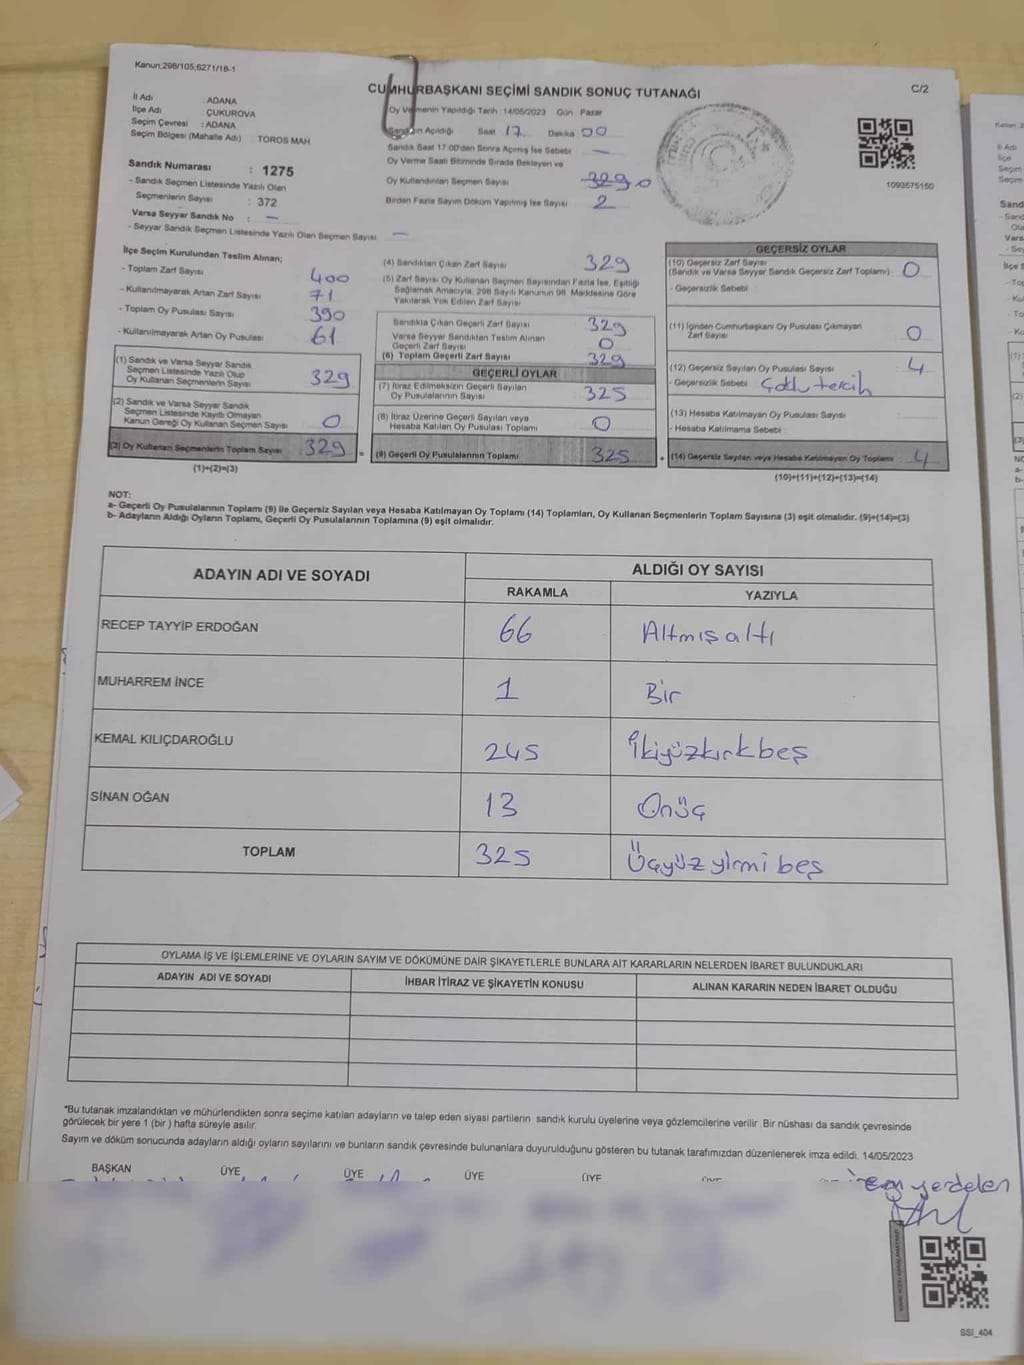 Kanun;298/105,6271/18-1
CUMHURBAŞKANI SEÇİMİ SANDIK SONUÇ TUTANAĞI
C/2
İl Adı : ADANA
İlçe Adı : ÇUKUROVA
Seçim Çevresi : ADANA
Seçim Bölgesi (Mahalle Adı) : TOROS MAH
Oy Vermenin Yapıldığı Tarih :14/05/2023 Gün Pazar
Sandığın Açıldığı Saat 17 Dakika 00
Sandık Saat 17.00'den Sonra Açılmış İse Sebebi —
Oy Verme Saati Bitiminde Sırada Bekleyen ve
Oy Kullandırılan Seçmen Sayısı 329 0
Birden Fazla Sayım Döküm Yapılmış İse Sayısı 2
1093575150
Sandık Numarası : 1275
- Sandık Seçmen Listesinde Yazılı Olan
Seçmenlerin Sayısı : 372
Varsa Seyyar Sandık No : —
- Seyyar Sandık Seçmen Listesinde Yazılı Olan Seçmen Sayısı: —
İlçe Seçim Kurulundan Teslim Alınan;
- Toplam Zarf Sayısı 400
- Kullanılmayarak Artan Zarf Sayısı 71
- Toplam Oy Pusulası Sayısı 390
- Kullanılmayarak Artan Oy Pusulası 61
(1) Sandık ve Varsa Seyyar Sandık
Seçmen Listesinde Yazılı Olup
Oy Kullanan Seçmenlerin Sayısı 329
(2) Sandık ve Varsa Seyyar Sandık
Seçmen Listesinde Kayıtlı Olmayan
Kanun Gereği Oy Kullanan Seçmen Sayısı 0
(3) Oy Kullanan Seçmenlerin Toplam Sayısı 329 =
(1)+(2)=(3)
(4) Sandıktan Çıkan Zarf Sayısı 329
(5) Zarf Sayısı Oy Kullanan Seçmen Sayısından Fazla İse, Eşitliği
Sağlamak Amacıyla; 298 Sayılı Kanunun 98. Maddesine Göre
Yakılarak Yok Edilen Zarf Sayısı
Sandıkta Çıkan Geçerli Zarf Sayısı 329
Varsa Seyyar Sandıktan Teslim Alınan
Geçerli Zarf Sayısı 0
(6) Toplam Geçerli Zarf Sayısı 329
GEÇERLİ OYLAR
(7) İtiraz Edilmeksizin Geçerli Sayılan
Oy Pusulalarının Sayısı 325
(8) İtiraz Üzerine Geçerli Sayılan veya
Hesaba Katılan Oy Pusulası Toplamı 0
(9) Geçerli Oy Pusulalarının Toplamı 325 +
GEÇERSİZ OYLAR
(10) Geçersiz Zarf Sayısı
(Sandık ve Varsa Seyyar Sandık Geçersiz Zarf Toplamı) : 0
- Geçersizlik Sebebi :
(11) İçinden Cumhurbaşkanı Oy Pusulası Çıkmayan
Zarf Sayısı : 0
(12) Geçersiz Sayılan Oy Pusulası Sayısı : 4
- Geçersizlik Sebebi : Çoklu tercih
(13) Hesaba Katılmayan Oy Pusulası Sayısı :
- Hesaba Katılmama Sebebi :
(14) Geçersiz Sayılan veya Hesaba Katılmayan Oy Toplamı : 4
(10)+(11)+(12)+(13)=(14)
NOT:
a- Geçerli Oy Pusulalarının Toplamı (9) ile Geçersiz Sayılan veya Hesaba Katılmayan Oy Toplamı (14) Toplamları, Oy Kullanan Seçmenlerin Toplam Sayısına (3) eşit olmalıdır. (9)+(14)=(3)
b- Adayların Aldığı Oyların Toplamı, Geçerli Oy Pusulalarının Toplamına (9) eşit olmalıdır.
ADAYIN ADI VE SOYADI
ALDIĞI OY SAYISI
RAKAMLA YAZIYLA
RECEP TAYYİP ERDOĞAN 66 Altmışaltı
MUHARREM İNCE 1 Bir
KEMAL KILIÇDAROĞLU 245 İkiyüzkırkbeş
SİNAN OĞAN 13 Onüç
TOPLAM 325 Üçyüz yirmi beş
OYLAMA İŞ VE İŞLEMLERİNE VE OYLARIN SAYIM VE DÖKÜMÜNE DAİR ŞİKAYETLERLE BUNLARA AİT KARARLARIN NELERDEN İBARET BULUNDUKLARI
ADAYIN ADI VE SOYADI İHBAR İTİRAZ VE ŞİKAYETİN KONUSU ALINAN KARARIN NEDEN İBARET OLDUĞU
*Bu tutanak imzalandıktan ve mühürlendikten sonra seçime katılan adayların ve talep eden siyasi partilerin sandık kurulu üyelerine veya gözlemcilerine verilir. Bir nüshası da sandık çevresinde
görülecek bir yere 1 (bir ) hafta süreyle asılır.
Sayım ve döküm sonucunda adayların aldığı oyların sayılarını ve bunların sandık çevresinde bulunanlara duyurulduğunu gösteren bu tutanak tarafımızdan düzenlenerek imza edildi. 14/05/2023
BAŞKAN ÜYE ÜYE ÜYE ÜYE
SSI_404